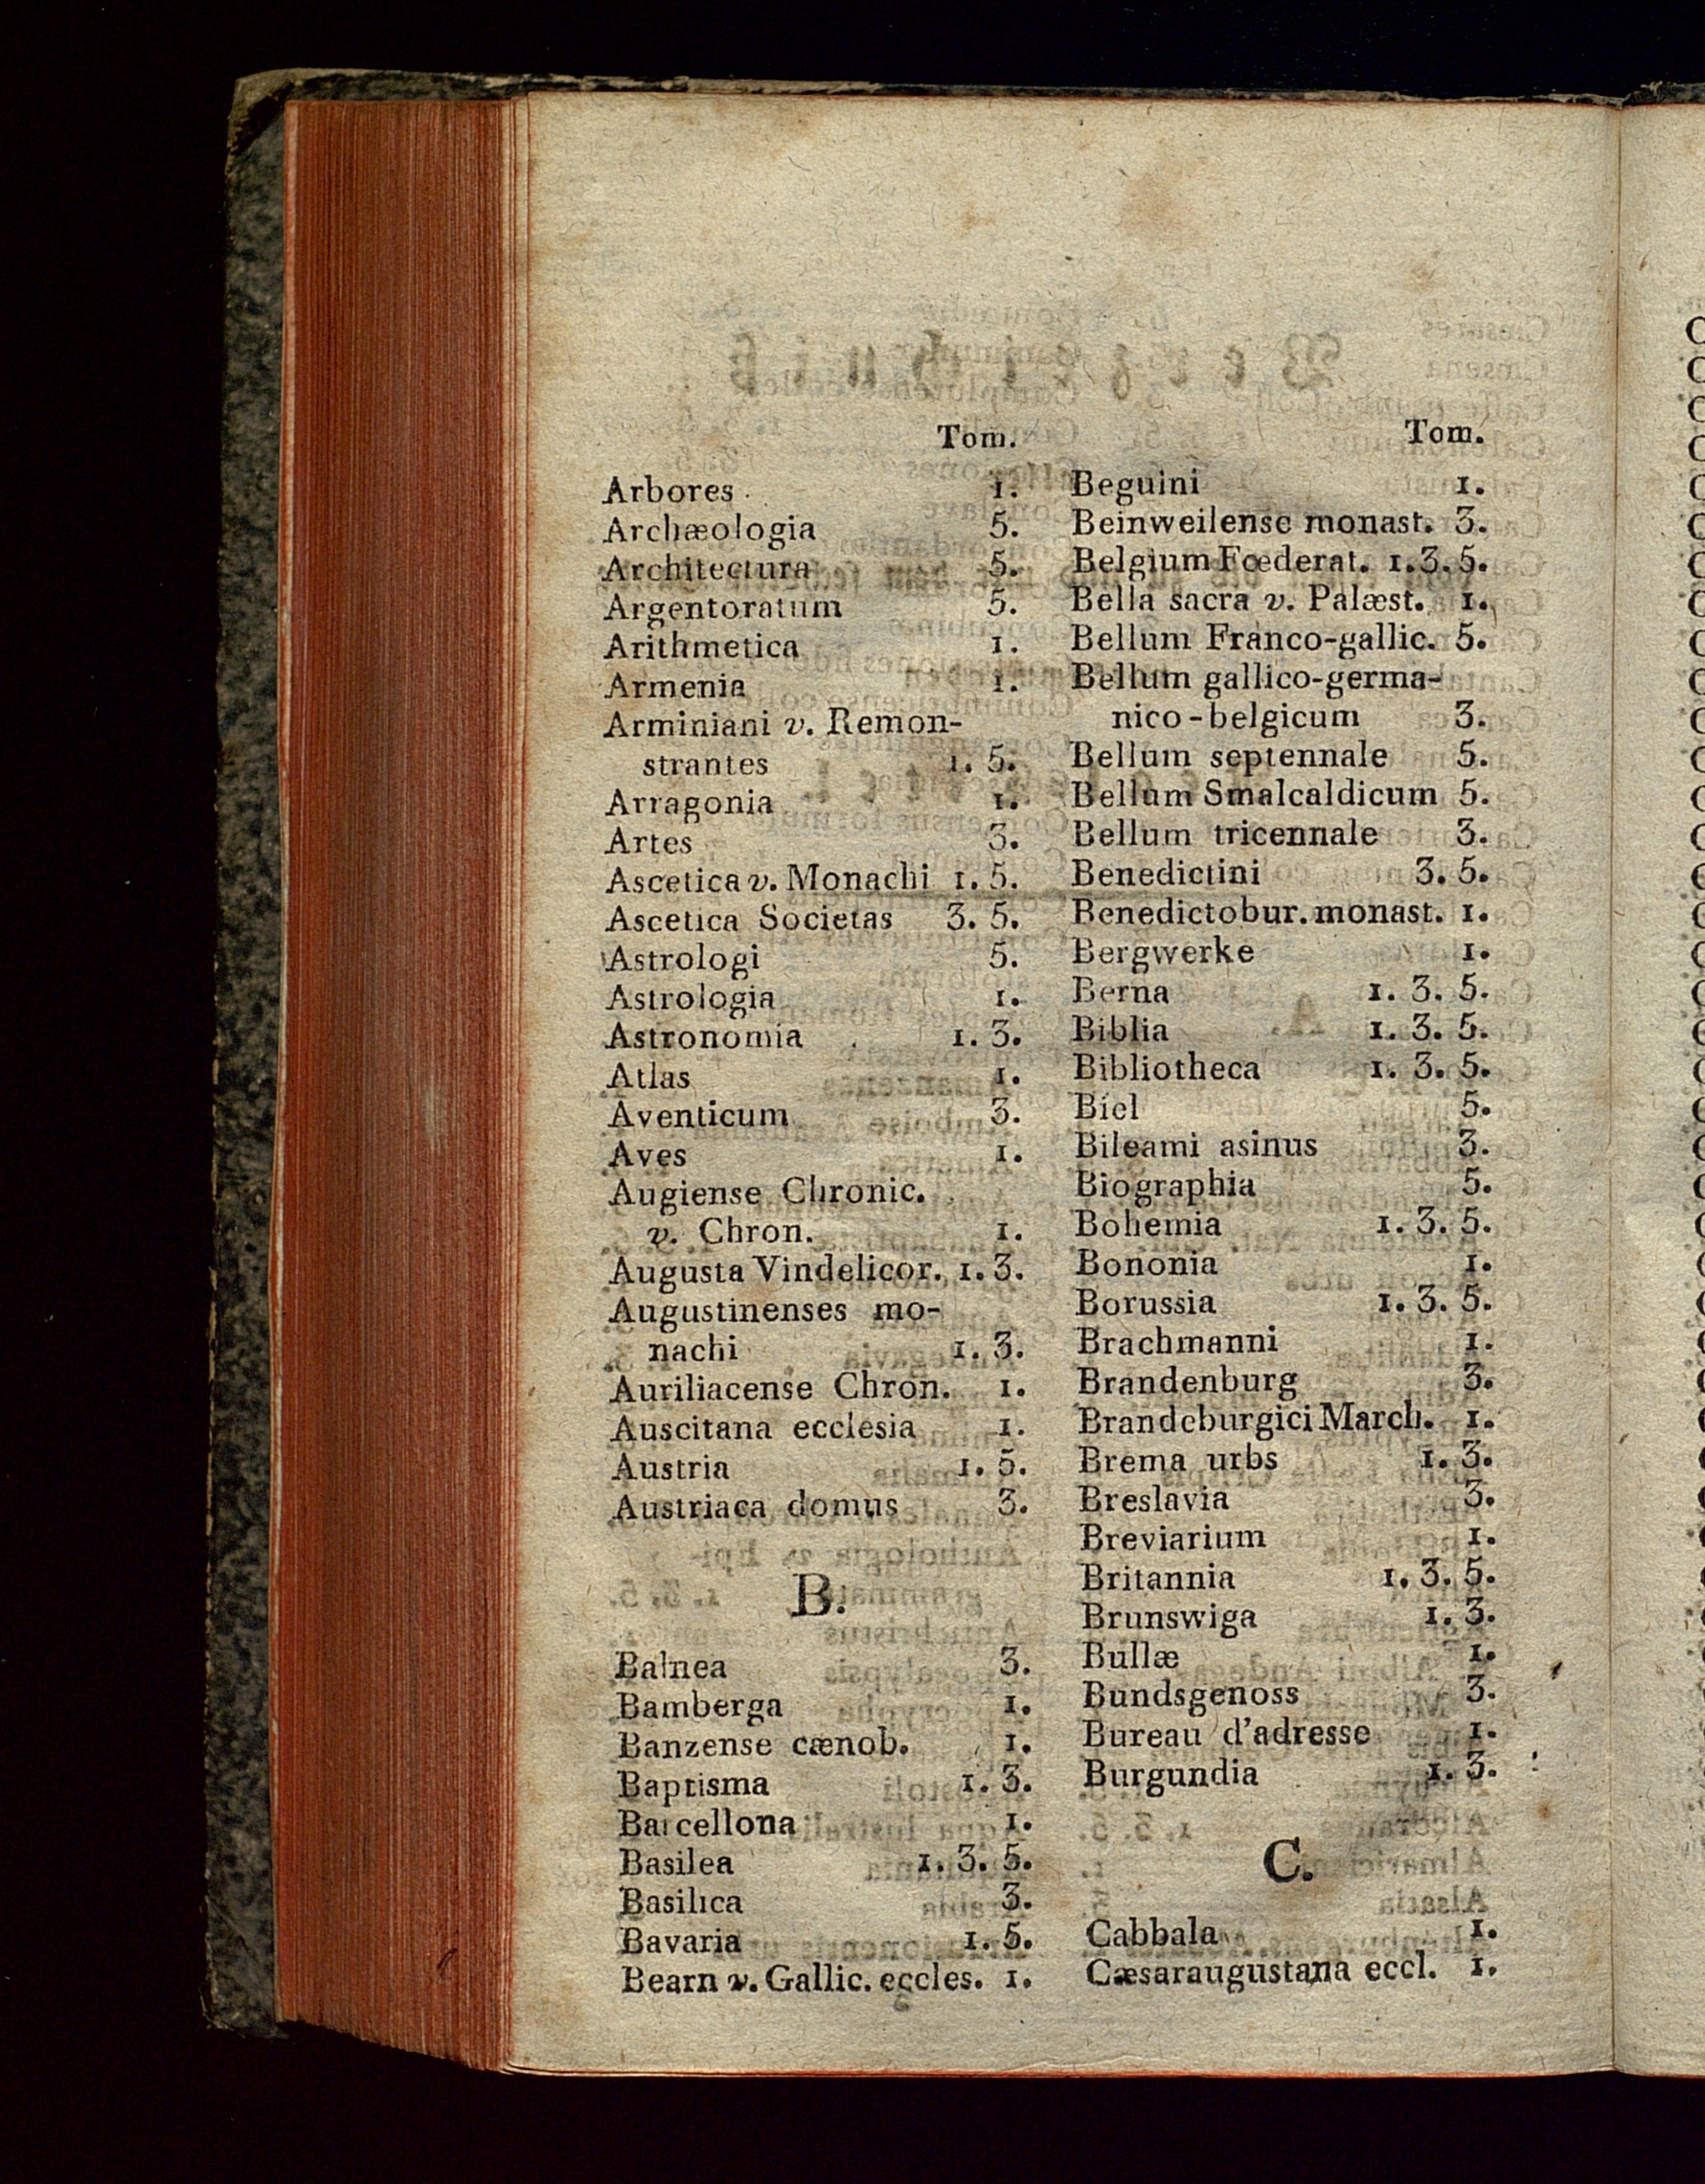 Tom.
Arbores 1.
Archæologia 5.
Architectura 5.
Argentoratum 5.
Arithmetica 1.
Armenia 1.
Arminiani v. Remon-
strantes 1. 5.
Arragonia 1.
Artes 3.
Ascetica v. Monachi 1. 5.
Ascetica Societas 3. 5.
Astrologi 5.
Astrologia 1.
Astronomia 1. 3.
Atlas 1.
Aventicum 3.
Aves 1.
Augiense Chronic.
v. Chron. 1.
Augusta Vindelicor. 1. 3.
Augustinenses mo-
nachi 1. 3.
Auriliacense Chron. 1.
Auscitana ecclesia 1.
Austria 1. 5.
Austriaca domus 3.
B.
Balnea 3.
Bamberga 1.
Banzense cænob. 1.
Baptisma 1. 3.
Barcellona 1.
Basilea 1. 3. 5.
Basilica 3.
Bavaria 1. 5.
Bearn v. Gallic. eccles. 1.
Tom.
Beguini 1.
Beinweilense monast. 3.
Belgium Fœderat. 1. 3. 5.
Bella sacra v. Palæst. 1.
Bellum Franco-gallic. 5.
Bellum gallico-germa-
nico-belgicum 3.
Bellum septennale 5.
Bellum Smalcaldicum 5.
Bellum tricennale 3.
Benedictini 3. 5.
Benedictobur. monast. 1.
Bergwerke 1.
Berna 1. 3. 5.
Biblia 1. 3. 5.
Bibliotheca 1. 3. 5.
Biel 5.
Bileami asinus 3.
Biographia 5.
Bohemia 1. 3. 5.
Bononia 1.
Borussia 1. 3. 5.
Brachmanni 1.
Brandenburg 3.
Brandeburgici March. 1.
Brema urbs 1. 3.
Breslavia 3.
Breviarium 1.
Britannia 1. 3. 5.
Brunswiga 1. 3.
Bullæ 1.
Bundsgenoss 3.
Bureau d'adresse 1.
Burgundia 1. 3.
C.
Cabbala 1.
Cæsaraugustana eccl. 1.